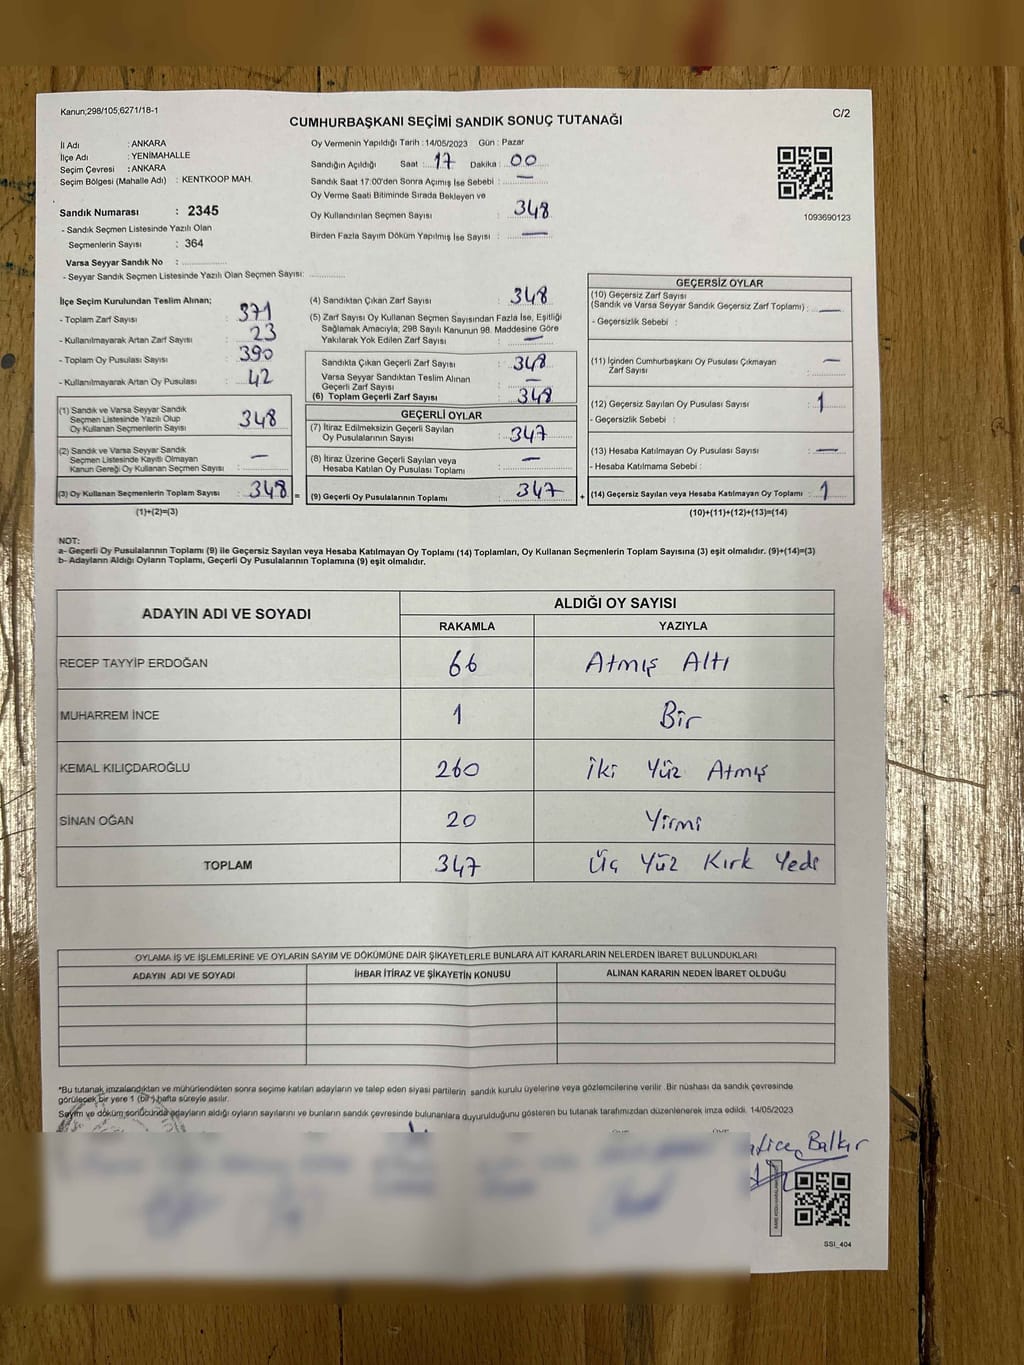 Kanun;298/105,6271/18-1
C/2
CUMHURBAŞKANI SEÇİMİ SANDIK SONUÇ TUTANAĞI
İl Adı : ANKARA
İlçe Adı : YENİMAHALLE
Seçim Çevresi : ANKARA
Seçim Bölgesi (Mahalle Adı) : KENTKOOP MAH.
Sandık Numarası : 2345
- Sandık Seçmen Listesinde Yazılı Olan
Seçmenlerin Sayısı : 364
Varsa Seyyar Sandık No :
- Seyyar Sandık Seçmen Listesinde Yazılı Olan Seçmen Sayısı:
Oy Vermenin Yapıldığı Tarih : 14/05/2023 Gün : Pazar
Sandığın Açıldığı Saat : 17 Dakika : 00
Sandık Saat 17:00'den Sonra Açımış İse Sebebi : —
Oy Verme Saati Bitiminde Sırada Bekleyen ve
Oy Kullandırılan Seçmen Sayısı : 348
Birden Fazla Sayım Döküm Yapılmış İse Sayısı : —
1093690123
İlçe Seçim Kurulundan Teslim Alınan;
- Toplam Zarf Sayısı : 371
- Kullanılmayarak Artan Zarf Sayısı : 23
- Toplam Oy Pusulası Sayısı : 390
- Kullanılmayarak Artan Oy Pusulası : 42
(1) Sandık ve Varsa Seyyar Sandık
Seçmen Listesinde Yazılı Olup
Oy Kullanan Seçmenlerin Sayısı : 348
(2) Sandık ve Varsa Seyyar Sandık
Seçmen Listesinde Kayıtlı Olmayan
Kanun Gereği Oy Kullanan Seçmen Sayısı : —
(3) Oy Kullanan Seçmenlerin Toplam Sayısı : 348 =
(1)+(2)=(3)
(4) Sandıktan Çıkan Zarf Sayısı : 348
(5) Zarf Sayısı Oy Kullanan Seçmen Sayısından Fazla İse, Eşitliği
Sağlamak Amacıyla; 298 Sayılı Kanunun 98. Maddesine Göre
Yakılarak Yok Edilen Zarf Sayısı : —
Sandıkta Çıkan Geçerli Zarf Sayısı : 348
Varsa Seyyar Sandıktan Teslim Alınan
Geçerli Zarf Sayısı : —
(6) Toplam Geçerli Zarf Sayısı : 348
GEÇERLİ OYLAR
(7) İtiraz Edilmeksizin Geçerli Sayılan
Oy Pusulalarının Sayısı : 347
(8) İtiraz Üzerine Geçerli Sayılan veya
Hesaba Katılan Oy Pusulası Toplamı : —
(9) Geçerli Oy Pusulalarının Toplamı : 347 +
GEÇERSİZ OYLAR
(10) Geçersiz Zarf Sayısı
(Sandık ve Varsa Seyyar Sandık Geçersiz Zarf Toplamı) : —
- Geçersizlik Sebebi :
(11) İçinden Cumhurbaşkanı Oy Pusulası Çıkmayan
Zarf Sayısı : —
(12) Geçersiz Sayılan Oy Pusulası Sayısı : 1
- Geçersizlik Sebebi :
(13) Hesaba Katılmayan Oy Pusulası Sayısı : —
- Hesaba Katılmama Sebebi :
(14) Geçersiz Sayılan veya Hesaba Katılmayan Oy Toplamı : 1
(10)+(11)+(12)+(13)=(14)
NOT:
a- Geçerli Oy Pusulalarının Toplamı (9) ile Geçersiz Sayılan veya Hesaba Katılmayan Oy Toplamı (14) Toplamları, Oy Kullanan Seçmenlerin Toplam Sayısına (3) eşit olmalıdır. (9)+(14)=(3)
b- Adayların Aldığı Oyların Toplamı, Geçerli Oy Pusulalarının Toplamına (9) eşit olmalıdır.
ADAYIN ADI VE SOYADI
ALDIĞI OY SAYISI
RAKAMLA YAZIYLA
RECEP TAYYİP ERDOĞAN 66 Atmış Altı
MUHARREM İNCE 1 Bir
KEMAL KILIÇDAROĞLU 260 İki Yüz Atmış
SİNAN OĞAN 20 Yirmi
TOPLAM 347 Üç Yüz Kırk Yedi
OYLAMA İŞ VE İŞLEMLERİNE VE OYLARIN SAYIM VE DÖKÜMÜNE DAİR ŞİKAYETLERLE BUNLARA AİT KARARLARIN NELERDEN İBARET BULUNDUKLARI
ADAYIN ADI VE SOYADI İHBAR İTİRAZ VE ŞİKAYETİN KONUSU ALINAN KARARIN NEDEN İBARET OLDUĞU
*Bu tutanak imzalandıktan ve mühürlendikten sonra seçime katılan adayların ve talep eden siyasi partilerin sandık kurulu üyelerine veya gözlemcilerine verilir. Bir nüshası da sandık çevresinde
görülecek bir yere 1 (bir) hafta süreyle asılır.
Sayım ve döküm sonucunda adayların aldığı oyların sayılarını ve bunların sandık çevresinde bulunanlara duyurulduğunu gösteren bu tutanak tarafımızdan düzenlenerek imza edildi. 14/05/2023
Balkır
SSI_404